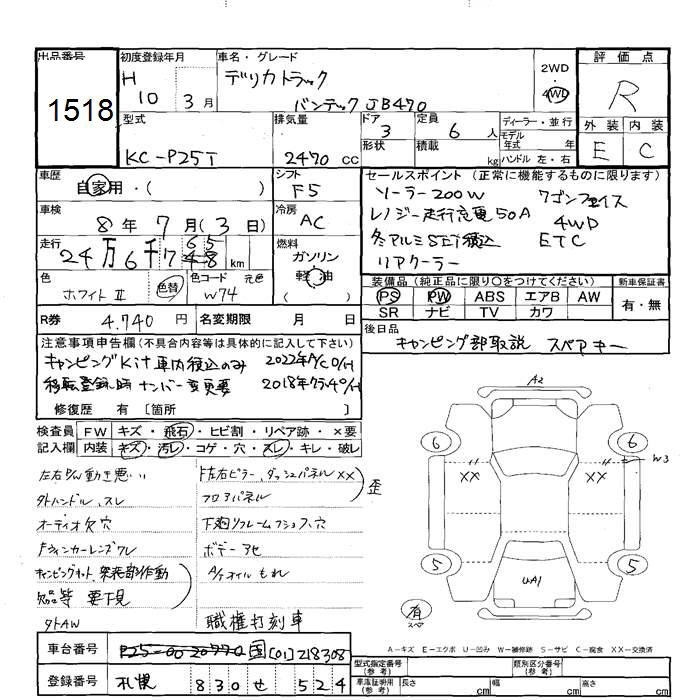 出品番号 1518
初度登録年月 H 10年 3月
車名・グレード デリカトラック
バンテック JB470
2WD 4WD
評価点 R
外装 E 内装 C
型式 KC-P25T
排気量 2470 cc
ドア 3
形状
定員 6 人
積載 kg
ディーラー・並行
モデル年式 年
ハンドル 左・右
車歴 自家用・( )
シフト F5
車検 8年 7月(3日)
冷房 AC
走行 24万6千7 km
燃料 ガソリン 軽油
色 ホワイトⅡ 色替
色コード W74 元色
R券 4.740 円
名変期限 月 日
セールスポイント(正常に機能するものに限ります)
ソーラー200W ワゴンフェイス
レノジー走行充電50A 4WD
冬アルミSET積込 ETC
リアクーラー
装備品(純正品に限り〇をつけてください) 新車保証書
PS PW ABS エアB AW 有・無
SR ナビ TV カワ
後日品
キャンピング部取説 スペアキー
注意事項申告欄(不具合内容等は具体的に記入して下さい)
キャンピングKit車内積込のみ 2022年A/C O/H
移転登録時 ナンバー変更要 2018年 O/H
修復歴 有 〔箇所 〕
検査員記入欄
FW キズ・飛石・ヒビ割・リペア跡・×要
内装 キズ・汚レ・コゲ・穴・スレ・キレ・破レ
左右P/W動き悪い
外ハンドル、スレ
オーディオ欠穴
Fウィンカーレンズワレ
キャンピングキット、発電部作動
欠品等 要下見
外AW
F左右ピラー、ダッシュパネルXX
フロアパネル
歪
下廻りフレームフューズ穴
ボデー
A/Tオイルもれ
職権打刻車
A2
6 6
XX XX
W3
5 5
UA1
有
スペ
A-キズ E-エクボ U-凹み W-補修跡 S-サビ C-腐食 XX-交換済
車台番号 P25-00-20770 国[01]218308
登録番号 札幌 830 せ 524
型式指定番号(参考) 類別区分番号(参考)
車庫証明用(参考) 長さ cm 幅 cm 高さ cm